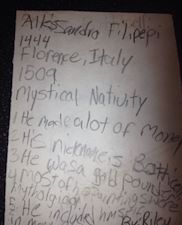 Alkssandro Filipepi
1444
Florence, Italy
1509
Mystical Nativity
1 He made a lot of money
2 HE nickname is Botticе
3 He was a gold pounde
4 most of his paintings were
mythology
5 He include himself
in By Riley